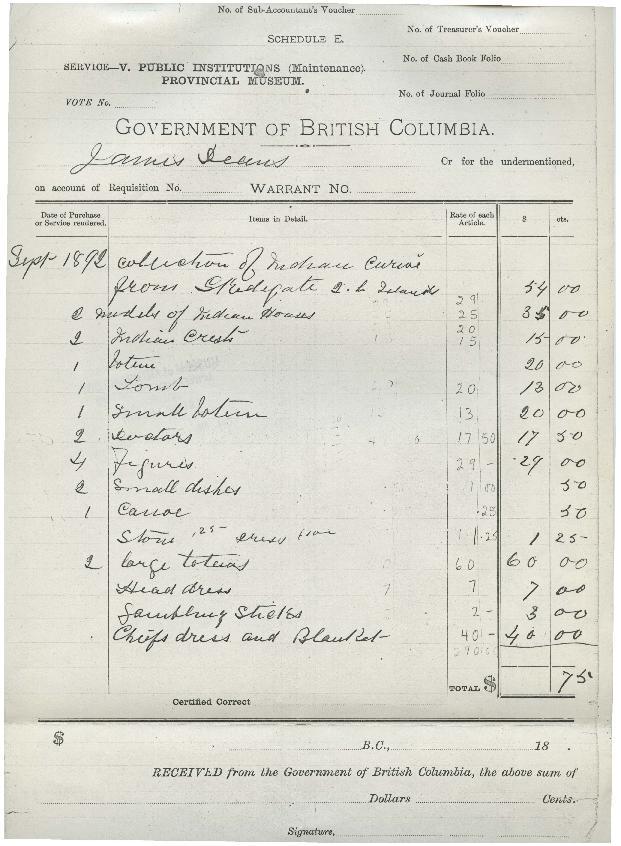 No. of Sub-Accountant's Voucher
SCHEDULE E.
No. of Treasurer's Voucher
SERVICE—V. PUBLIC INSTITUTIONS (Maintenance).
No. of Cash Book Folio
PROVINCIAL MUSEUM.
No. of Journal Folio
VOTE No.
GOVERNMENT OF BRITISH COLUMBIA.
James Deans Or for the undermentioned,
on account of Requisition No. WARRANT NO.
Date of Purchase or Service rendered. Items in Detail. Rate of each Article. $ cts.
Sept 1892 collection of Indian Curios
from Skedegate Q. C. Islands 54 00
29
2 models of Indian Houses 25 35 00
20
2 Indian Crests 15 15 00
1 totem 20 00
1 Tomb 20 13 00
1 Small totem 13 20 00
2 doctors 17 50 17 50
4 Figures 29 - 29 00
2 Small dishes 1 00 50
1 Canoe .25 50
Stone .25 1.25 1 25
2 large totems 60 60 00
Head dress 7 7 00
Gambling Sticks 2 - 3 00
Chiefs dress and Blanket 40 - 40 00
TOTAL $ 75
Certified Correct
$ B.C., 18 .
RECEIVED from the Government of British Columbia, the above sum of
Dollars Cents.
Signature,